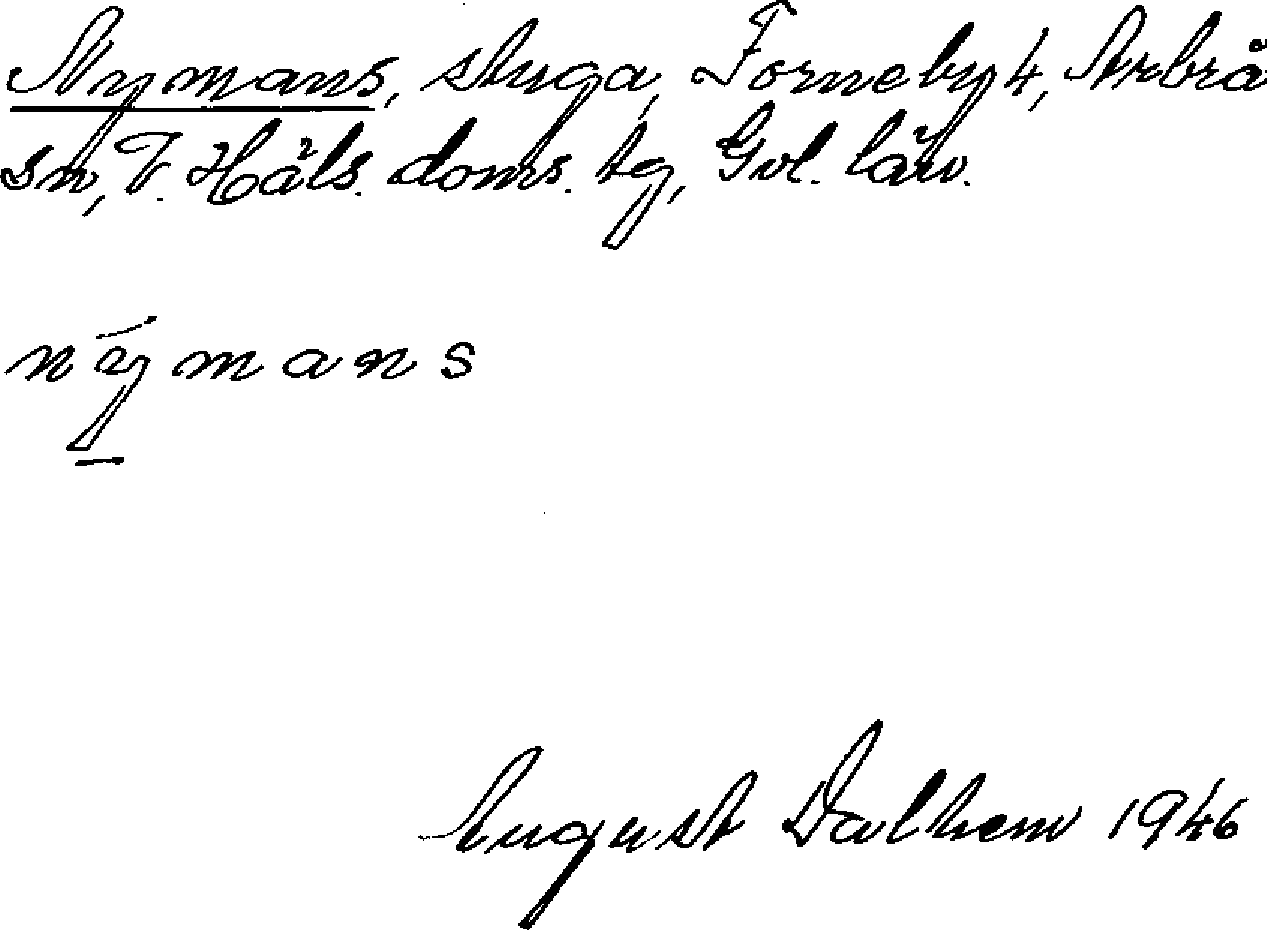 Nymans, stuga, Forneby 4, Arbrå
sn, V. Häls. doms. tg, Gvl. län.
nýmans
August Dalhem 1946